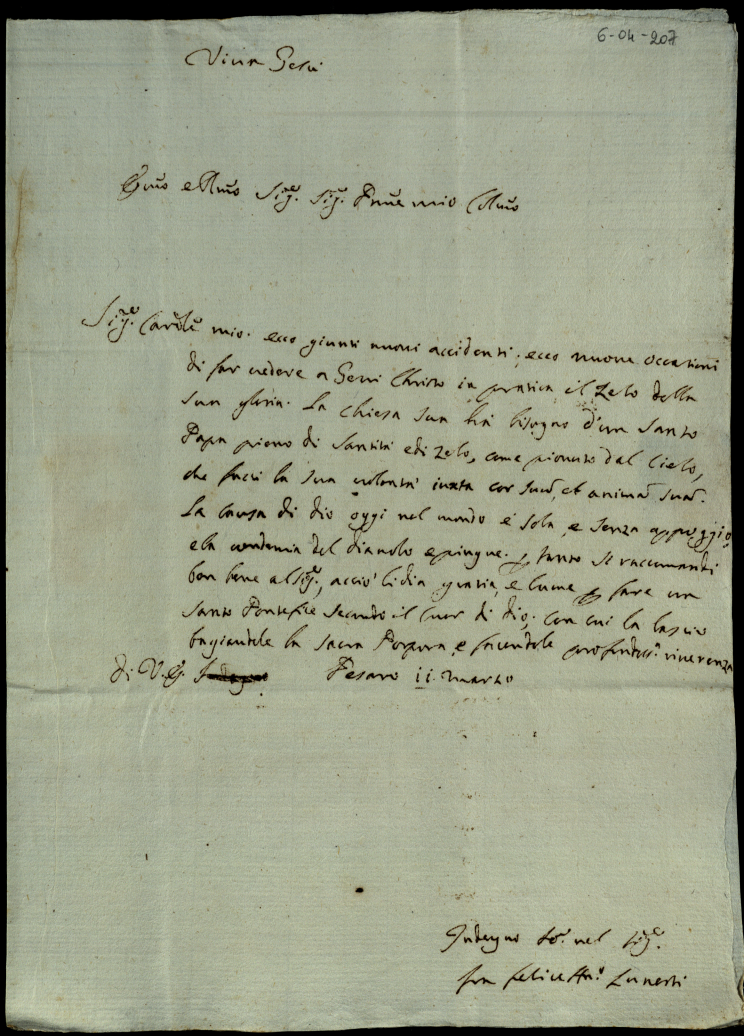 6-04-207
Viva Gesù
Emo e Rmo Sigre. Sigre. Pnne mio Colmo
Sigre. Carmo mio. ecco giunti nuovi accidenti; ecco nuove occasioni
di far vedere a Gesù Christo in pratica il zelo della
sua gloria. La Chiesa sua hà bisogno d'un Santo
Papa pieno di santità e di zelo, come piovuto dal Cielo,
che facci la sua volontà iuxta cor suũ, et animã suã.
La causa di dio oggi nel mondo è sola, e senza appoggio,
e la vendemia del diavolo e pingue. p tanto si raccomandi
ben bene al Sigre., acciò li dia grazia, e lume p fare un
Santo Pontefice secondo il Cuor di dio; con cui la lascio
bagiandole la sacra Porpora, e facendole profondissa. riverenza
di V. E. Pesaro 11. marzo
Indegno so. nel Sigre.
fra felice